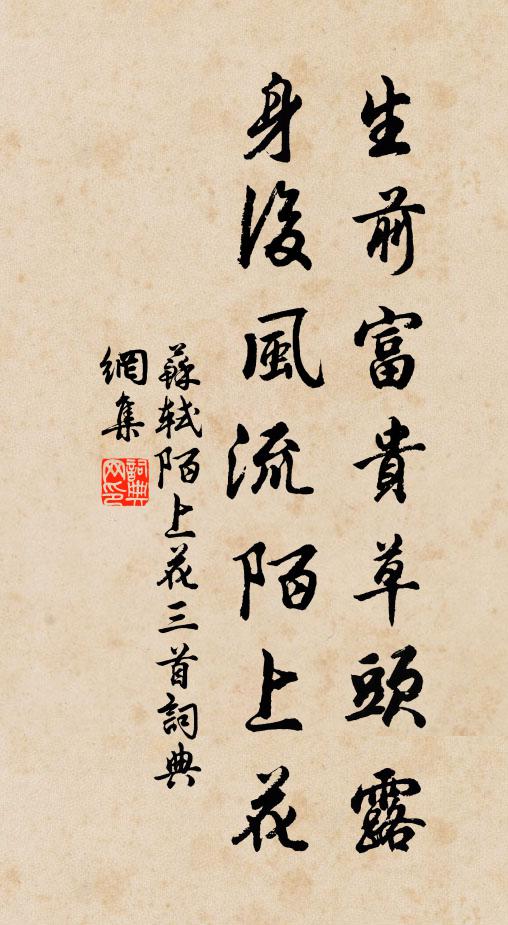 生前富貴草頭露
身後風流陌上花
蘇軾陌上花三首詞典
網集
詞典
网印